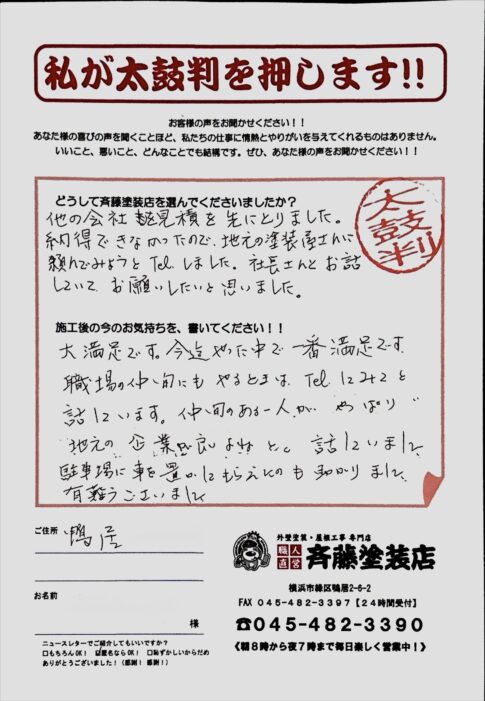 私が太鼓判を押します!!
お客様の声をお聞かせください！！
あなた様の喜びの声を聞くことほど、私たちの仕事に情熱とやりがいを与えてくれるものはありません。
いいこと、悪いこと、どんなことでも結構です。ぜひ、あなた様の声をお聞かせください！！
どうして斉藤塗装店を選んでくださいましたか？
太鼓判
他の会社 見積を先にとりました。
納得できなかったので、地元の塗装屋さんに
頼んでみようとTel.しました。社長さんとお話
していて お願いしたいと思いました。
施工後の今のお気持ちを、書いてください！！
大満足です。今迄やった中で一番満足です。
職場の仲間にもやるときは Tel.してみてと
話しています。仲間のある一人が やっぱり
地元の企業が良いよねと。話していました
駐車場に車を置かしてもらえたのも助かりました
有難うございました
ご住所
鴨居
お名前
様
ニュースレターでご紹介してもいいですか？
□もちろんOK！ ☑匿名ならOK！ □恥ずかしいからだめ
ありがとうございました！（感謝！感謝！）
外壁塗装・屋根工事 専門店
職人直営 斉藤塗装店
横浜市緑区鴨居2-6-2
FAX 045-482-3397【24時間受付】
☎045-482-3390
《朝8時から夜7時まで毎日楽しく営業中！》